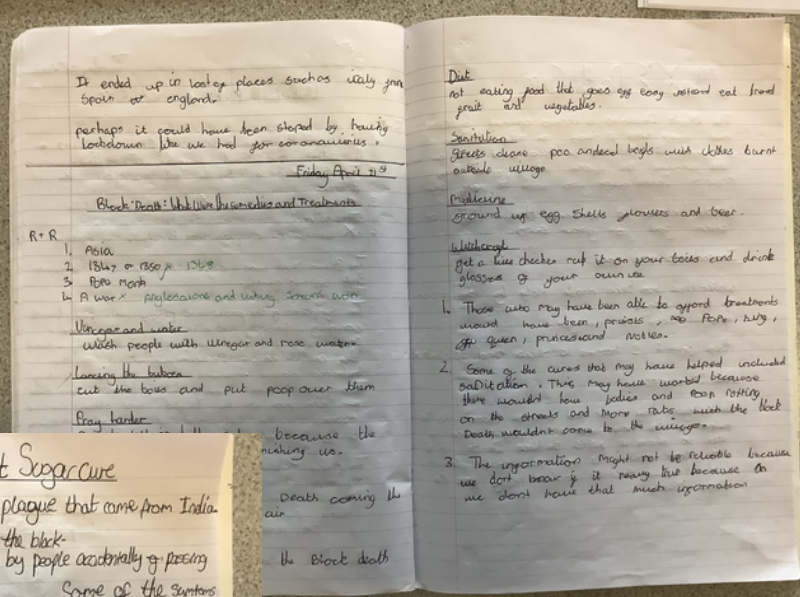 It ended up in lots of places suchas italy from
Spain or england.
perhaps it could have been stoped by having
lockdown like we had for coronavirus.
Friday April 21st
Black Death: What Were the remedies and Treatments
R+R
1. Asia
2. 1347 or 1350 x 1348
3. Popo Monh
4. A war x anglosaxons and viking
Vinegar and water
wash people with vinegar and rose water.
Lancing the buboes
cut the boils and put poop over them
Pray harder
because the
nishing us.
Death coming the
air
the Black death
t Sugar cure
plague that came from India.
the black-
by people accidentally passing
Some of the Symtoms
Diet
not eating food that goes off easy instead eat bread
fruit and vegetables.
Sanitation
streets cleane poo and with clothes burnt
outside village
Medicine
ground up egg shells flowers and beer.
Witchcraft
get a live checken rub it on your boils and drink
glasses of your own
1. Those who may have been able to afford treatments
would have been, preists, Pope, king,
queen, princes and nobles.
2. Some of the cures that may have helped included
sanitation. This may have worked because
there wouldnt have bodies and poop rotting
on the streets and more rats with the black
Death wouldnt come to the village.
3. The information might not be reliable because
we dont know if it really true because
we dont have that much information